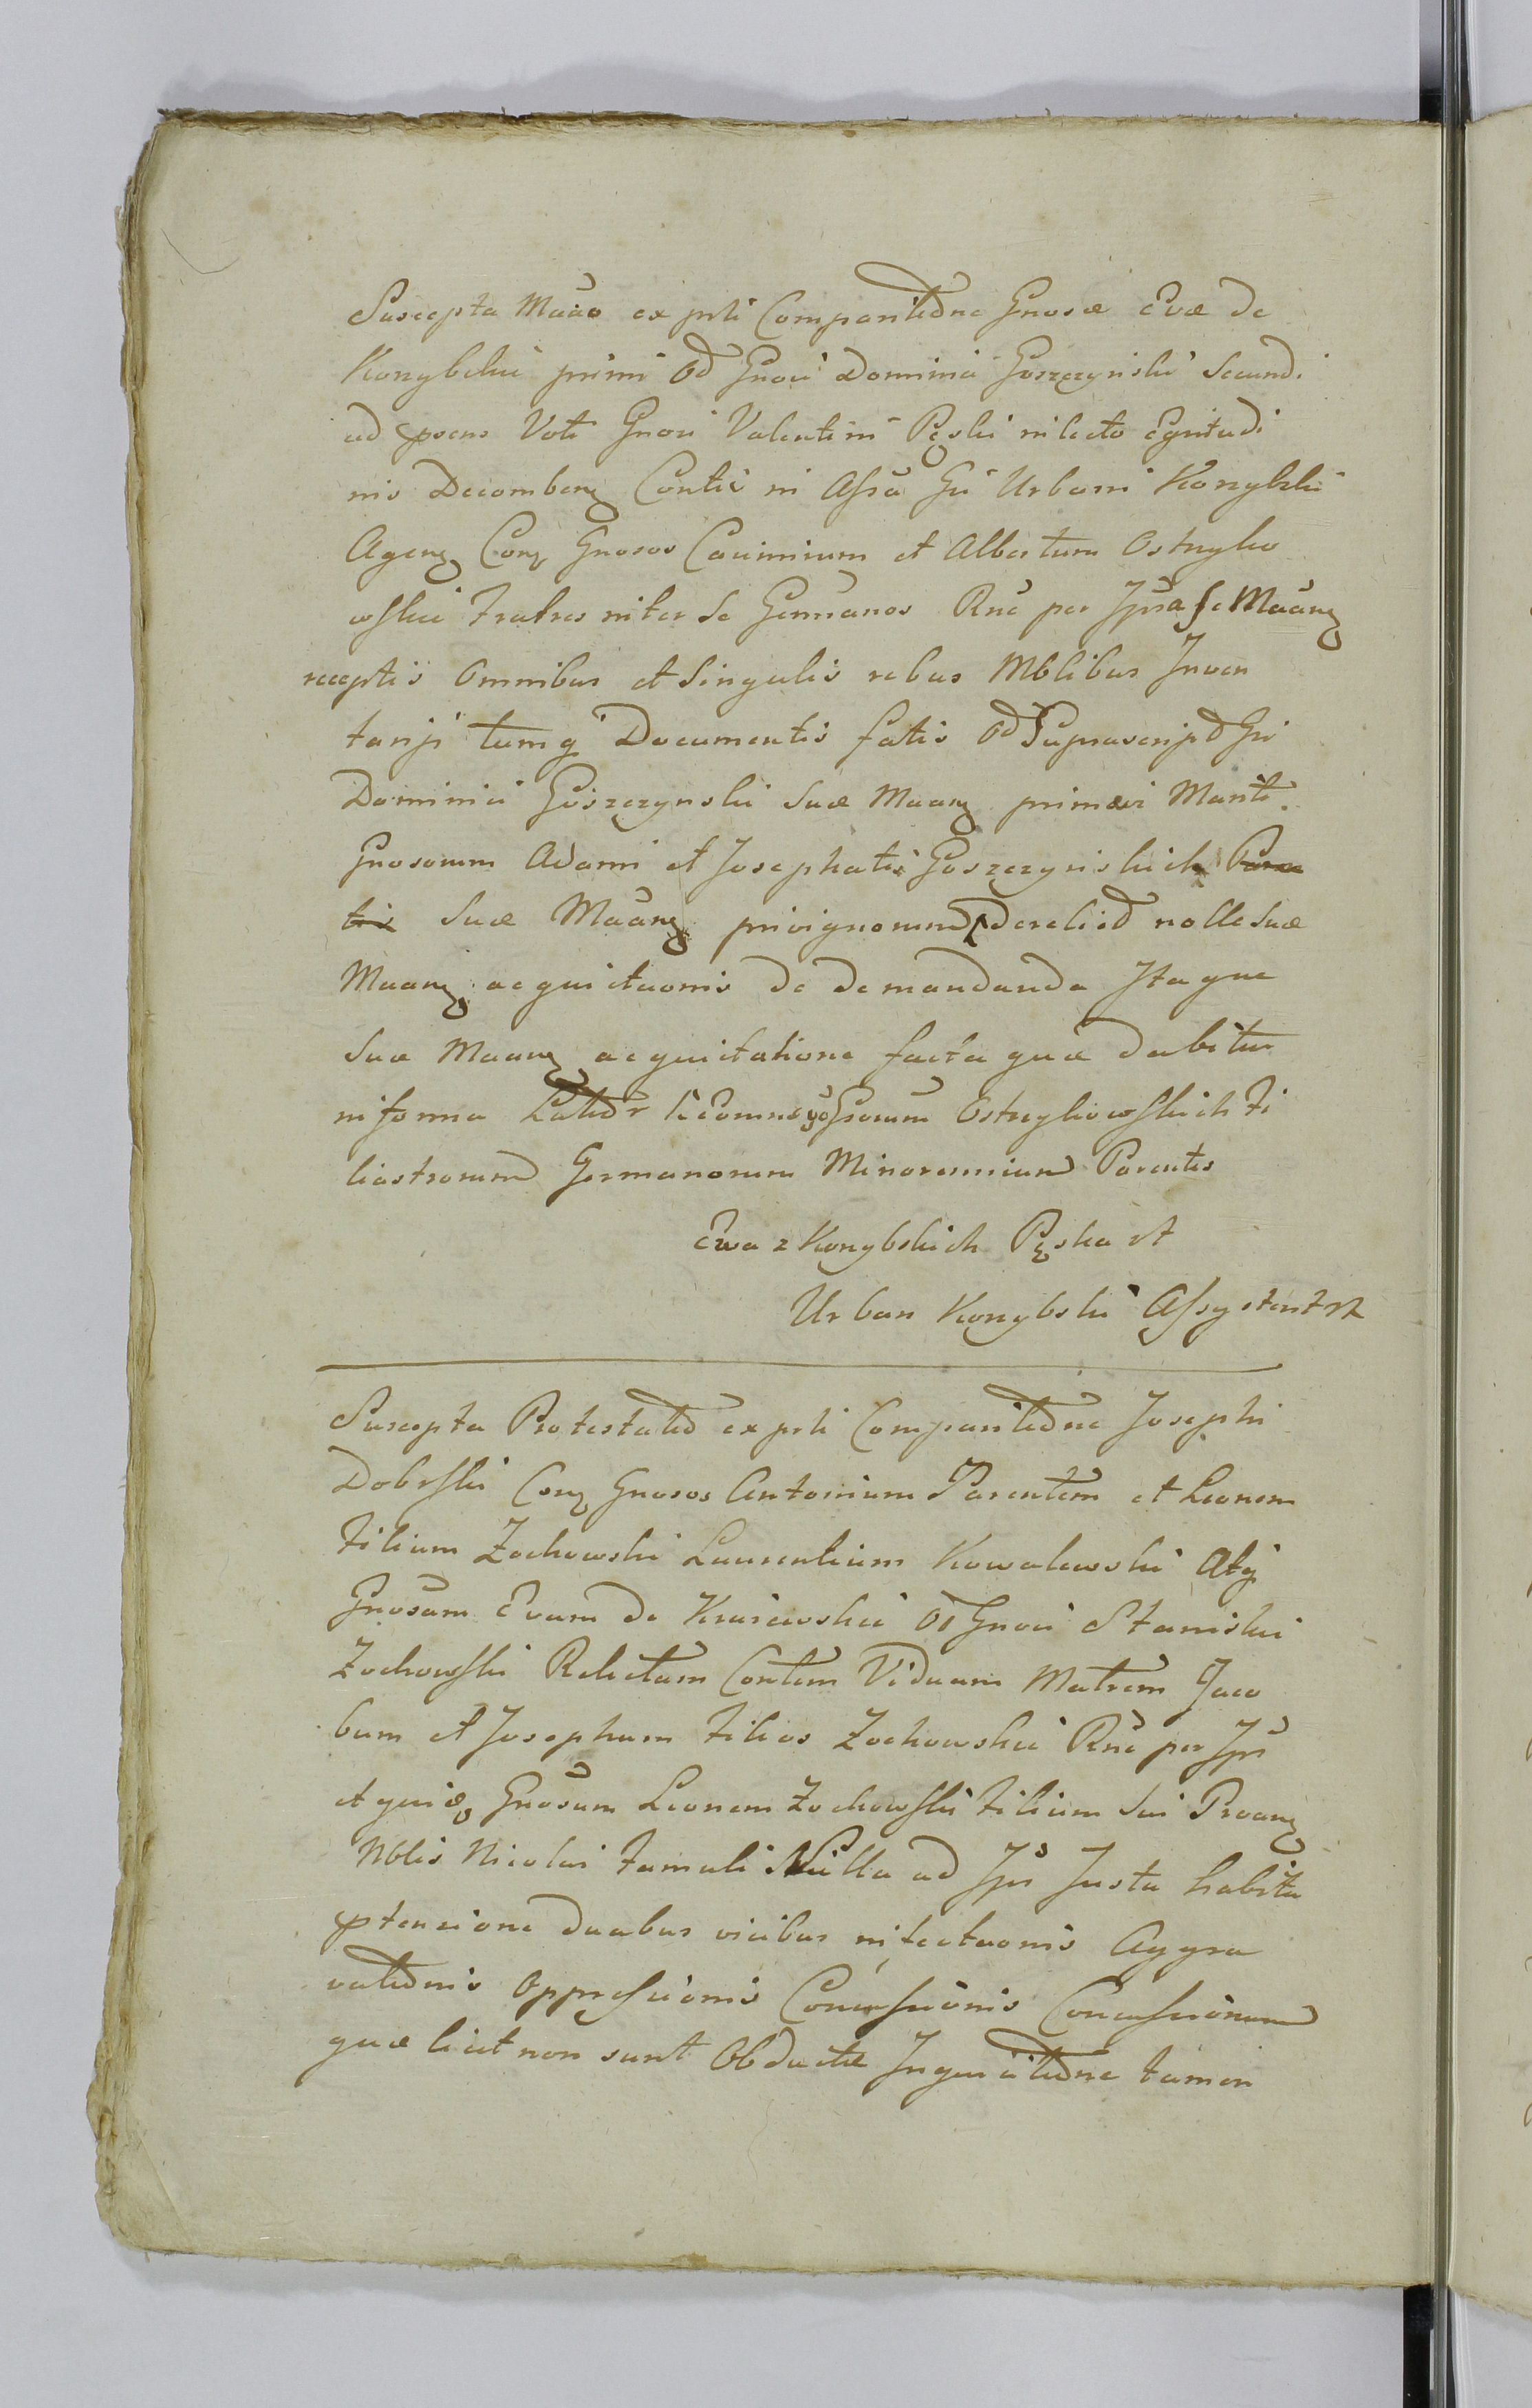 Suscepta Maāo ex prti Comparitōne Gnosæ Evæ de
Korzybskie primi Od Gnosi Dominici Goszczynski Secundi
ad præsens Voti Gnosi Valentini Pęski in lecto Egritudi
nis Decomben Contis in Assā Gsi Urbani Korzybski
Agen Con Gnosos Casimirum et Albertum Ostrzyko
wskie Fratres inter se Germanos Rnē per Jpsa se Maān
receptis Omnibus et Singulis rebus Mblibus Inven
tarji tumq Documentis fatis Od Suprascrip Gsi
Dominici Goszczynski Suæ Maan primævi Mariti
Gnosorum Adami et Josephatis Goszczynskich Paren
tis Suæ Maān privignorum derelict nolle Suæ
Maan acquictaonis de demandanda Itaque
Suæ Maan acquitatione facta quæ dabitur
in forma Gsorum Ostrzykowskich Fi
liastrorum Germanorum Minorennium Parentis
Ewa z Korzybskich Pęska
Urban Korzybski Assystent
Suscepta Protestatio ex prti Comparitōne Josephi
Dobrski Con Gnosos Antonium Parentem et Leonem
Filium Zochowski Laurentium Kowalewski Atq
Gnosam Evam de Krajewskie Od Gnosi Stanislai
Zochowski Relictam Contem Viduam Matrem Jaco
bum et Josephum Filios Zochowskie Rnē per Jps
et quia Gnosum Leonem Zochowski Filium Sui Proan
Nblis Nicolai Famuli Nulla ad Jps Justa habita
prætensione duabus vicibus infectaonis Aggra
vatōnis Oppressionis Concussionis Concussionum
quæ licet non sunt Obductæ Inquisitōne tamen